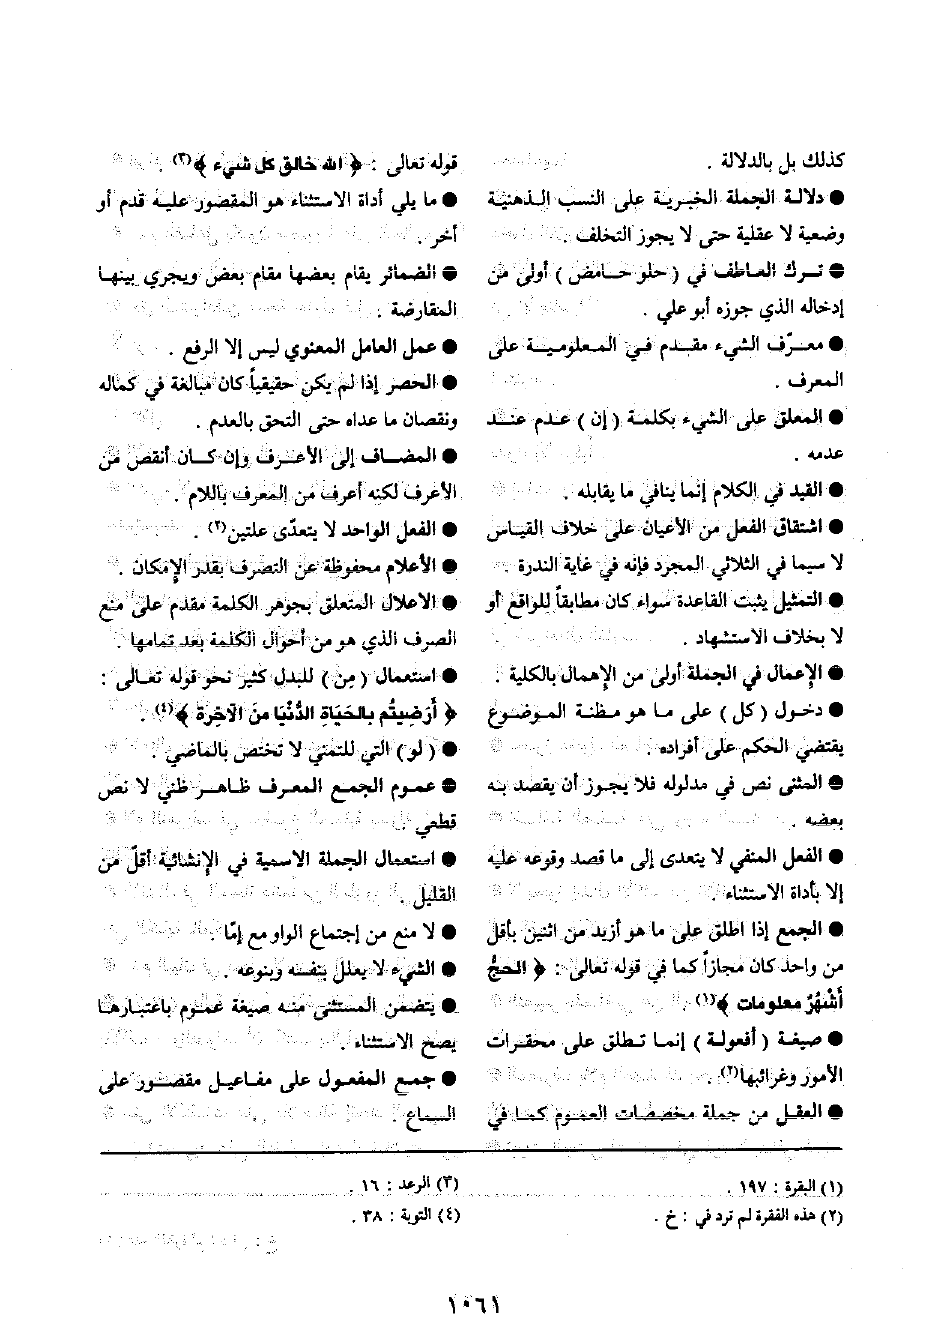 كذلك بل بالدلالة .
● دلالة الجملة الخبرية على النسب الذهنية
وضعية لا عقلية حتى لا يجوز التخلف .
● ترك العاطف في ( حلو حامض ) أولى من
إدخاله الذي جوزه أبو علي .
● معرّف الشيء مقدم في المعلومية على
المعرف .
● المعلق على الشيء بكلمة ( إن ) عدم عند
عدمه .
● القيد في الكلام إنما ينافي ما يقابله .
● اشتقاق الفعل من الأعيان على خلاف القياس
لا سيما في الثلاثي المجرد فإنه في غاية الندرة .
● التمثيل يثبت القاعدة سواء كان مطابقاً للواقع أو
لا بخلاف الاستشهاد .
● الإعمال في الجملة أولى من الإهمال بالكلية .
● دخول ( كل ) على ما هو مظنة الموضوع
يقتضي الحكم على أفراده .
● المثنى نص في مدلوله فلا يجوز أن يقصد به
بعضه .
● الفعل المنفي لا يتعدى إلى ما قصد وقوعه عليه
إلا بأداة الاستثناء .
● الجمع إذا اطلق على ما هو أزيد من اثنين بأقل
من واحد كان مجازاً كما في قوله تعالى : ﴿ الحجُّ
أَشْهُرٌ معلومات ﴾(١) .
● صيغة ( أفعولة ) إنما تطلق على محقرات
الأمور وغرائبها(٢) .
● العقل من جملة مخصصات العموم كما في
قوله تعالى : ﴿ الله خالق كل شيء ﴾(٣) .
● ما يلي أداة الاستثناء هو المقصور عليه قدم أو
أخر .
● الضمائر يقام بعضها مقام بعض ويجري بينها
المقارضة .
● عمل العامل المعنوي ليس إلا الرفع .
● الحصر إذا لم يكن حقيقياً كان مبالغة في كماله
ونقصان ما عداه حتى التحق بالعدم .
● المضاف إلى الأعرف وإن كان أنقص من
الأعرف لكنه أعرف من المعرف باللام .
● الفعل الواحد لا يتعدّى علتين(٢) .
● الأعلام محفوظة عن التصرف بقدر الإمكان .
● الاعلال المتعلق بجوهر الكلمة مقدم على منع
الصرف الذي هو من أحوال الكلمة بعد تمامها .
● استعمال ( مِن ) للبدل كثير نحو قوله تعالى :
﴿ أَرَضِيتُم بالحَيَاةِ الدُّنْيَا منَ الآخِرَة ﴾(٤) .
● ( لو ) التي للتمني لا تختص بالماضي .
● عموم الجمع المعرف ظاهر ظني لا نص
قطعي
● استعمال الجملة الاسمية في الإنشائية أقلّ من
القليل .
● لا منع من إجتماع الواو مع إمّا .
● الشيء لا يعلل بنفسه وبنوعه .
● يتضمن المستثنى منه صيغة عموم باعتبارها
يصح الاستثناء .
● جمع المفعول على مفاعيل مقصور على
السماع .
(١) البقرة : ١٩٧ .
(٢) هذه الفقرة لم ترد في : خ .
(٣) الرعد : ١٦ .
(٤) التوبة : ٣٨ .
١٠٦١